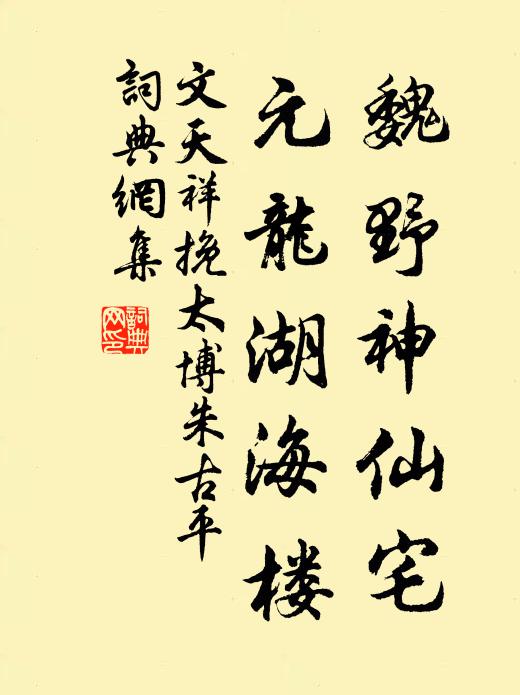 魏野神仙宅
元龍湖海楼
文天祥挽太博朱古平
詞典網集
詞典
网印